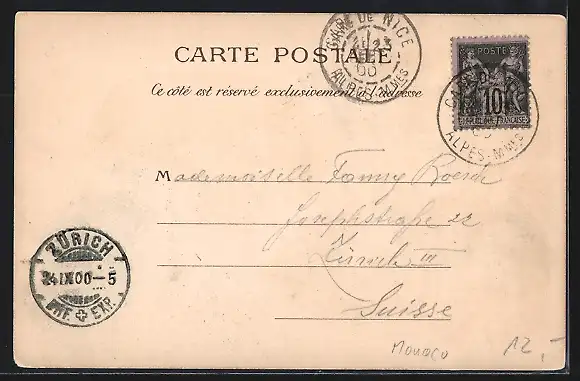 GARE DE NICE
13
00
ALPES-MMES
POSTE
10
RÉPUBLIQUE FRANÇAISE
ALPES-MMES
CARTE POSTALE
Ce côté est réservé exclusivement à l'adresse
Mademoiselle Fanny Roesch
Josephstraße 22
Zürich III
Suisse
ZÜRICH
24 IX 00-5
BRF. EXP.
Monaco
12,-